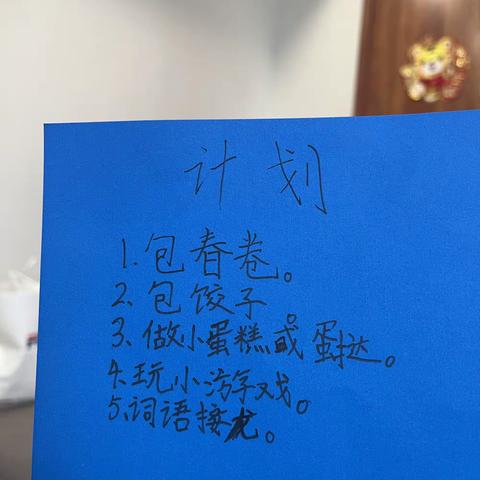 计划
1.包春卷。
2.包饺子。
3.做小蛋糕或蛋挞。
4.玩小游戏。
5.词语接龙。